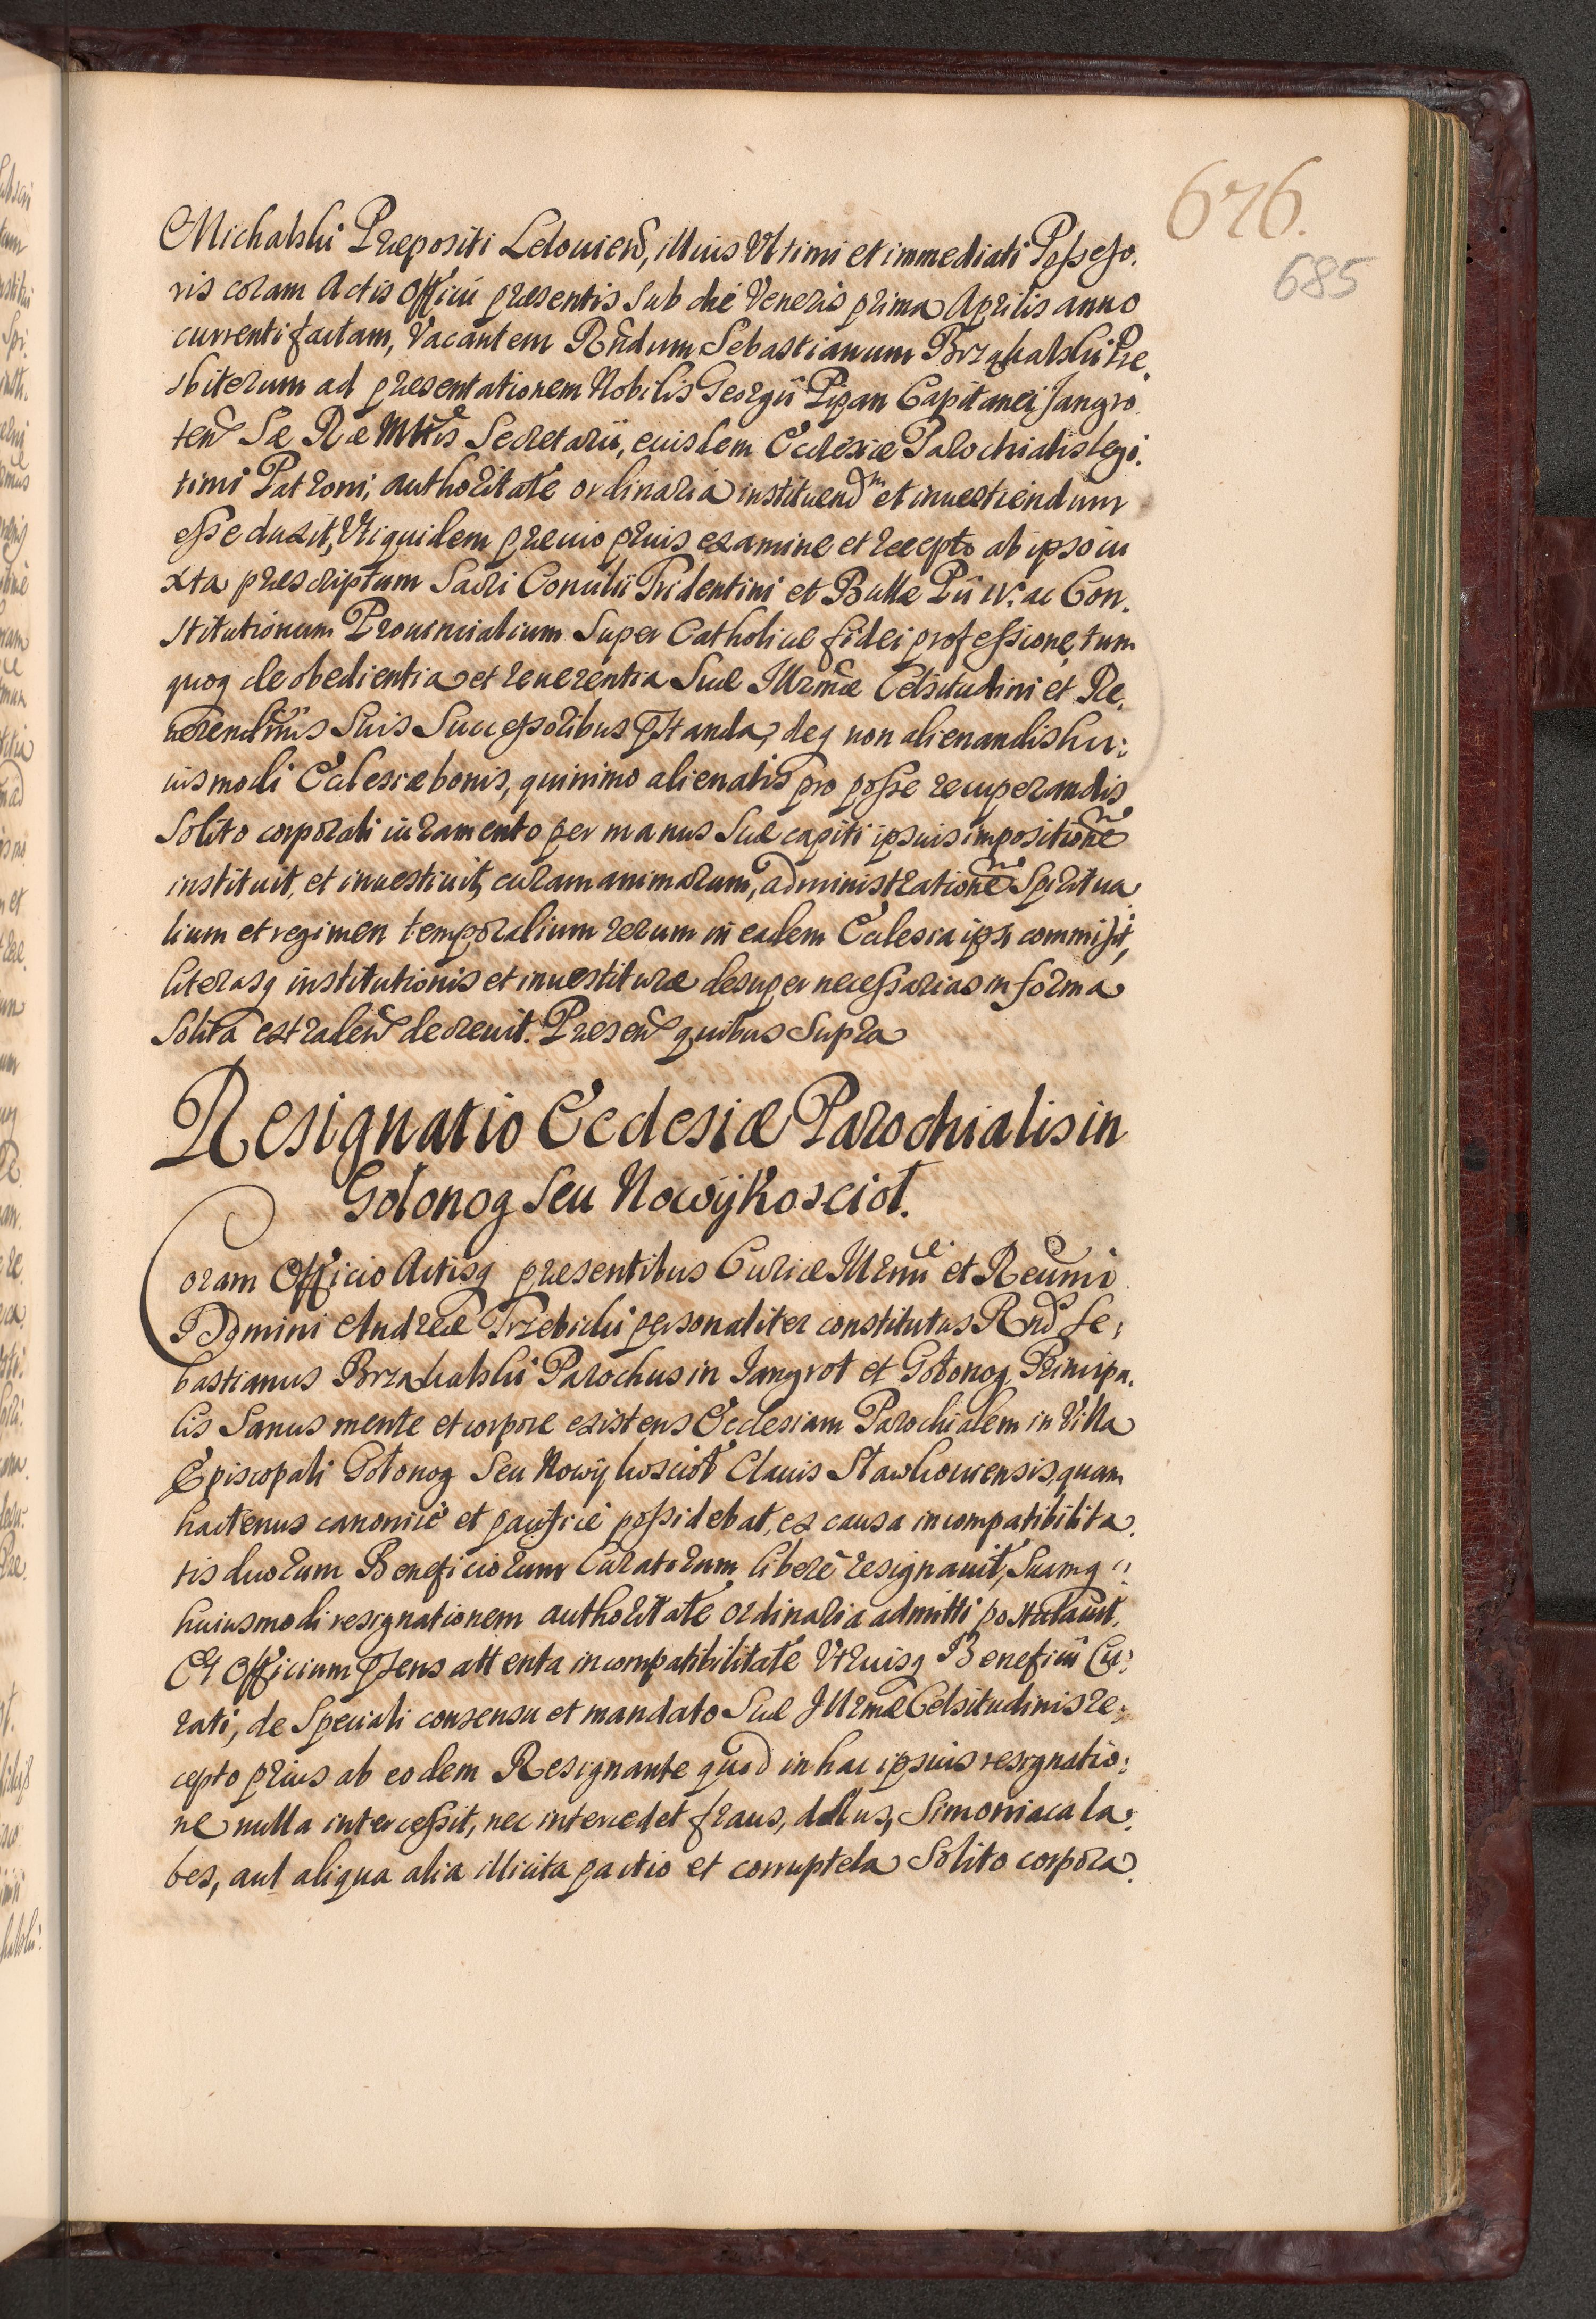 676.
685
Michalski Præpositi Lelouien, illius Vltimi et immediati Possesso.
ris coram Actis Officii præsentis sub die Veneris prima Aprilis anno
currenti factam, Vacantem Rndum Sebastianum Brząkalski Præ.
sbiterum ad præsentationem Nobilis Georgii Pipan Capitanei Jangro
ten Sæ Ræ Mttis Secretarii, eiusdem Ecclesiæ Parochialis legi.
timi Patroni, authoritate ordinaria instituendm et inuestiendum
esse duxit, Vti quidem præuio prius examine et recepto ab ipso iu
xta præscriptum Sacri Concilii Tridentini et Bullæ Pii IV. ac Con.
stitutionum Prouincialium super Catholicæ fidei professione, tum
quoq de obedientia et reuerentia Suæ Illrmæ Celsitudini et Re.
uerendmis suis Successoribus pstanda, deq non alienandis hu:
iusmodi Ecclesiæ bonis, quinimo alienatis pro posse recuperandis
solito corporali iuramento per manus suæ capiti ipsius impositione
instituit, et inuestiuit, curam animarum, administratione Spiritua
lium et regimen temporalium rerum in eadem Ecclesia ipsi commisit,
literasq institutionis et inuestituræ desuper necessarias in forma
solita extraden decreuit. Præsen quibus supra
Resignatio Ecclesiæ Parochialis in
Gołonog seu Nowÿ Koscioł.
Coram Officio Actisq præsentibus Curiæ Illrmi et Reumi
Domini Andreæ Trzebicki personaliter constitutus Rnd Se:
bastianus Brząkalski Parochus in Jangrot et Gołonog Principa.
lis sanus mente et corpore existens Ecclesiam Parochialem in Villa
Episcopali Gołonog seu Nowÿ kosciół Clauis Slawkouiensis, quam
hactenus canonicè et pacificè possidebat, ex causa incompatibilita.
tis duorum Beneficiorum Curatorum liberè resignauit, Suamq
huiusmodi resignationem authoritate ordinaria admitti postulauit.
Et Officium psens attenta incompatibilitate Vtriusq Beneficii Cu:
rati, de speciali consensu et mandato Suæ Illrmæ Celsitudinis re:
cepto prius ab eodem Resignante quod in hac ipsius resignatio:
ne nulla intercessit, nec intercedet fraus, dolus, Simoniaca la:
bes, aut aliqua alia illicita pactio et corruptela solito corpora.